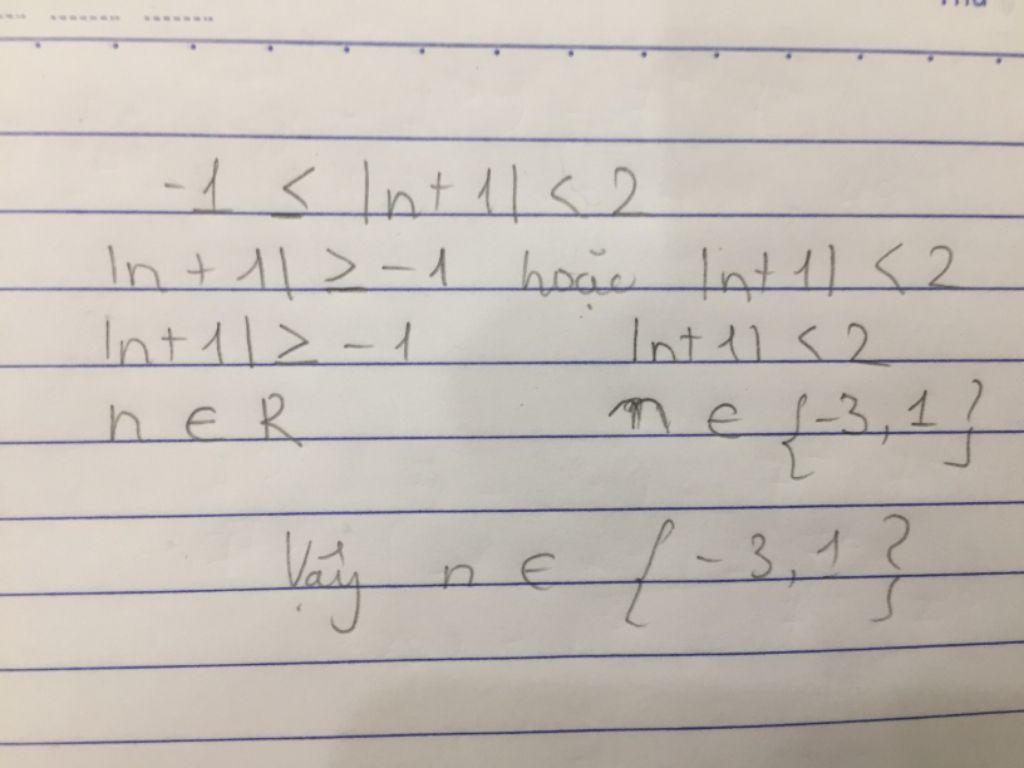 -1 ≤ |n+1| < 2
|n + 1| ≥ -1 hoặc |n+1| < 2
|n+1| ≥ -1 |n+1| < 2
n ∈ R n ∈ {-3, 1}
Vậy n ∈ {-3, 1}